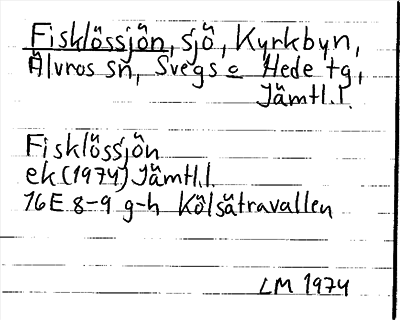 Fisklössjön, sjö, Kyrkbyn,
Älvros sn, Svegs o Hede tg,
Jämtl.l.
Fisklössjön
ek (1974) Jämtl.l.
16E 8-9 g-h Kölsätravallen
LM 1974